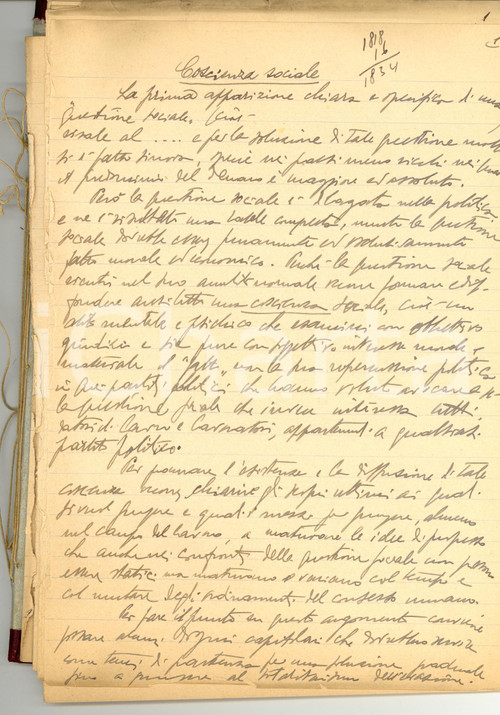 1
1818
16
1834
Coscienza sociale
La prima apparizione chiara e specifica di una
questione sociale,
risale al .... e per la soluzione di tale questione molto
si è fatto sinora, specie nei paesi meno
predominio del denaro è maggiore ed assoluto.
Però la questione sociale è dilagata nella politica
e ne è risultato una completa, mentre la questione
sociale dovrebbe essere puramente ed assolutamente
fatto morale ed economico. Perchè la questione sociale
rientri nel suo normale occorre formare e dif-
fondere anzitutto una coscienza sociale, cioè un
abito mentale e psichico che esamini con obbiettivo
giudizio e sia pure con rispettivo interesse morale e
materiale il "fatto" con la sua ripercussione politica
in quei partiti politici che hanno voluto
la questione sociale che invece interessa tutti
datori di lavoro e lavoratori, appartenenti a qualsiasi
partito politico.
Per l'esistenza e la diffusione di tale
coscienza occorre chiarire gli scopi ultimi ai quali
si vuol giungere e quali i mezzi per giungere, almeno
nel campo del lavoro, a maturare le idee
che anche nei confronti della questione sociale non possono
essere statici ma maturano o variano col tempo e
col mutare degli ordinamenti del consesso umano.
Per fare il punto su questo argomento conviene
porre alcuni capisaldi che dovrebbero servire
come di partenza per una soluzione graduale
fino a giungere al